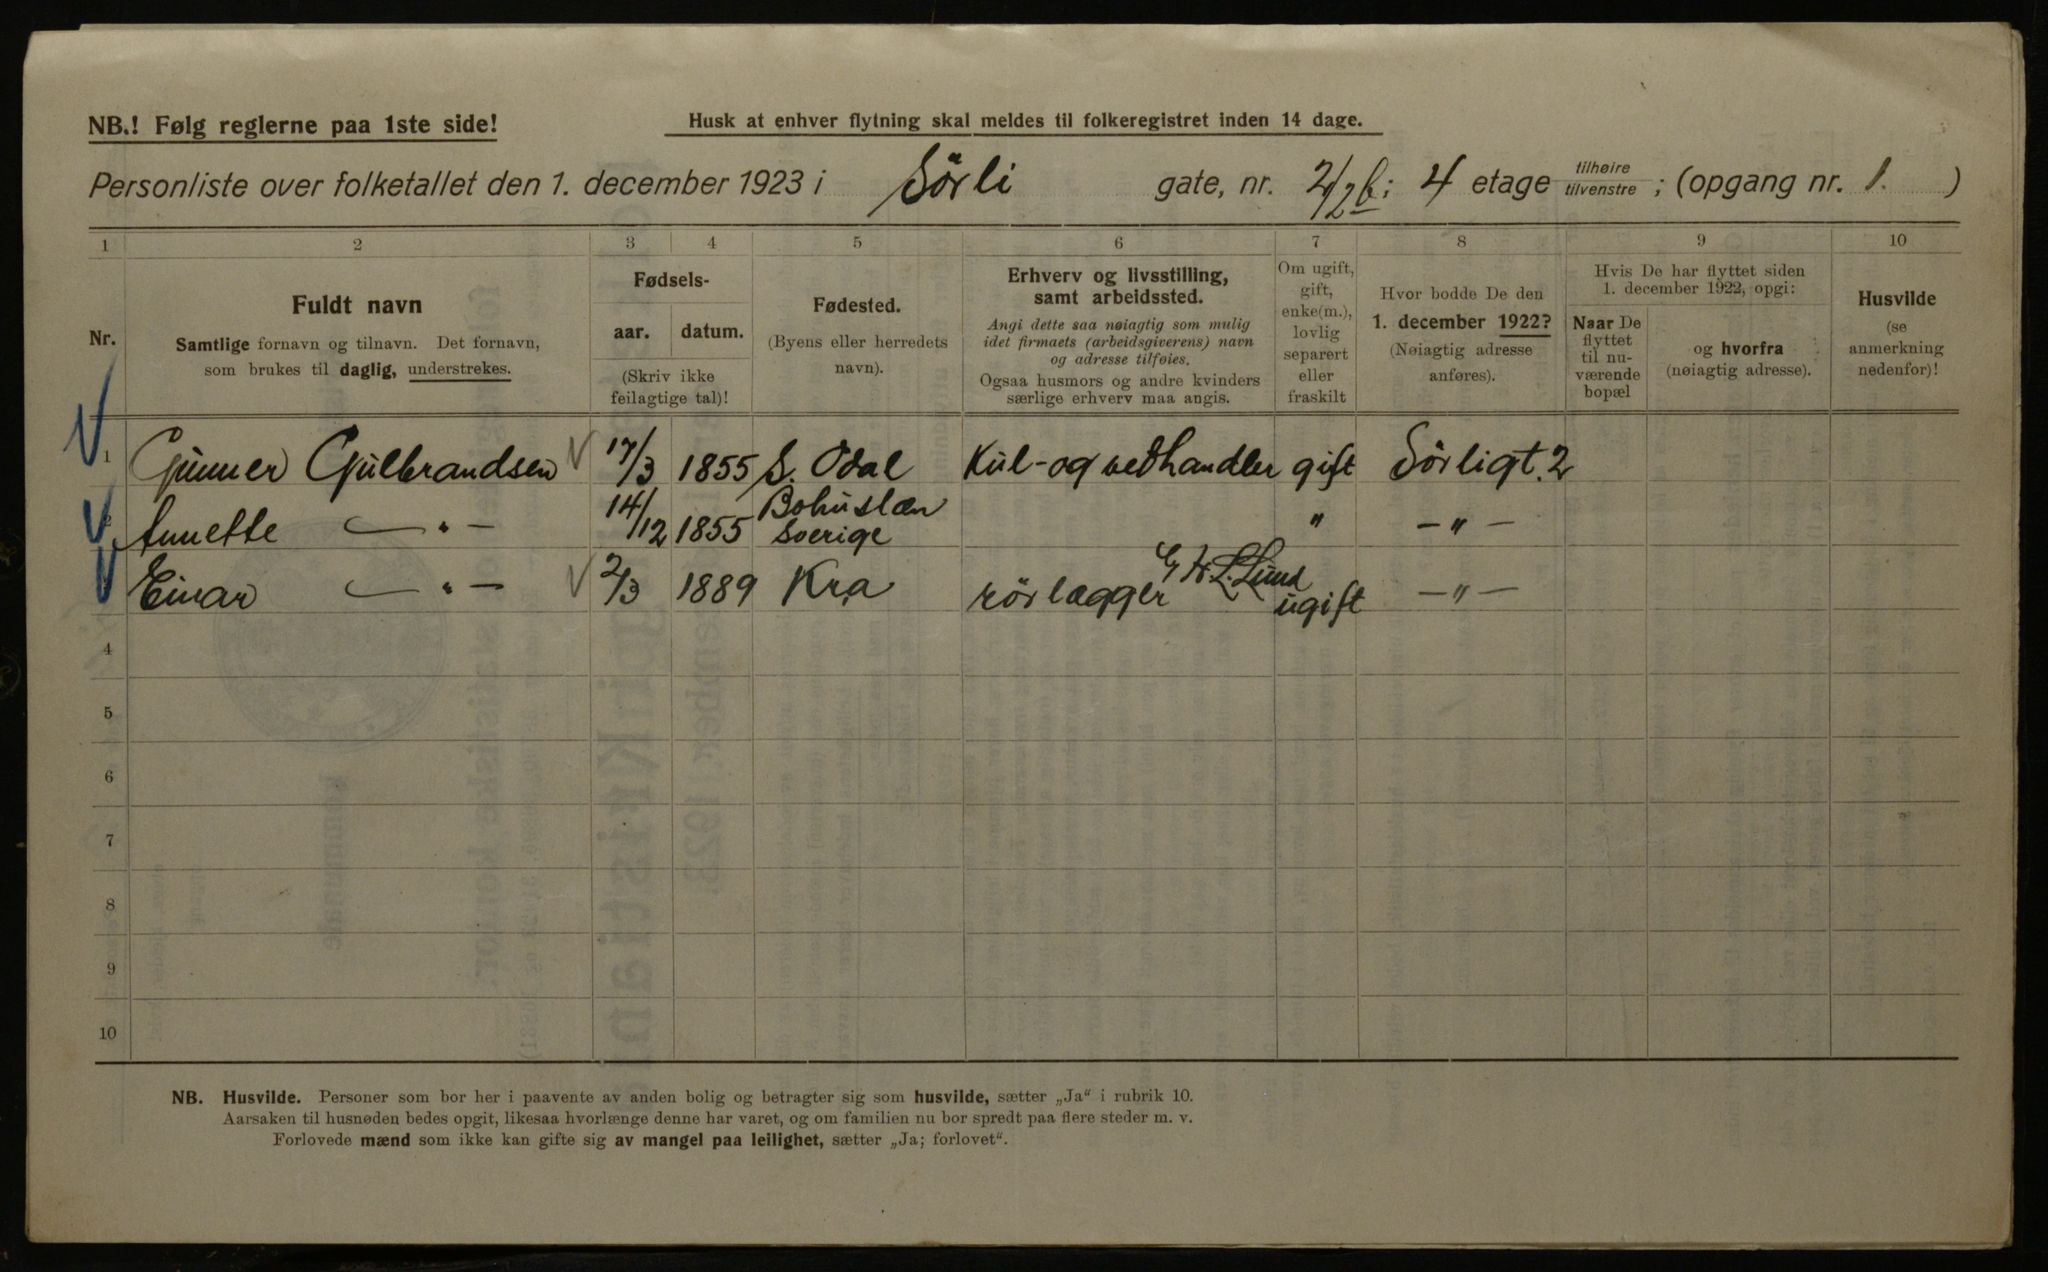 NB.! Følg reglerne paa 1ste side!
Husk at enhver flytning skal meldes til folkeregistret inden 14 dage.
Personliste over folketallet den 1. december 1923 i Sörli gate, nr. 2/2b; 4 etage tilhøire tilvenstre ; (opgang nr. 1. )
1 2 3 4 5 6 7 8 9 10
Nr.
Fuldt navn
Samtlige fornavn og tilnavn. Det fornavn,
som brukes til daglig, understrekes.
Fødsels-
aar. datum.
(Skriv ikke
feilagtige tal)!
Fødested.
(Byens eller herredets
navn).
Erhverv og livsstilling,
samt arbeidssted.
Angi dette saa nøiagtig som mulig
idet firmaets (arbeidsgiverens) navn
og adresse tilføies.
Ogsaa husmors og andre kvinders
særlige erhverv maa angis.
Om ugift,
gift,
enke(m.),
lovlig
separert
eller
fraskilt
Hvor bodde De den
1. december 1922?
(Nøiagtig adresse
anføres).
Hvis De har flyttet siden
1. december 1922, opgi:
Naar De
flyttet
til nu-
værende
bopæl
og hvorfra
(nøiagtig adresse).
Husvilde
(se
anmerkning
nedenfor)!
1 Gunner Gulbrandsen 17/3 1855 S. Odal Kul-og vedhandler gift Sörligt. 2
2 Annette — " — 14/12 1855 Bohuslæn Sverige " — " —
Einar — " — 2/3 1889 Kra rörlægger H. L. Lund ugift — " —
4
5
6
7
8
9
10
NB. Husvilde. Personer som bor her i paavente av anden bolig og betragter sig som husvilde, sætter „Ja“ i rubrik 10.
Aarsaken til husnøden bedes opgit, likesaa hvorlænge denne har varet, og om familien nu bor spredt paa flere steder m. v.
Forlovede mænd som ikke kan gifte sig av mangel paa leilighet, sætter „Ja; forlovet“.